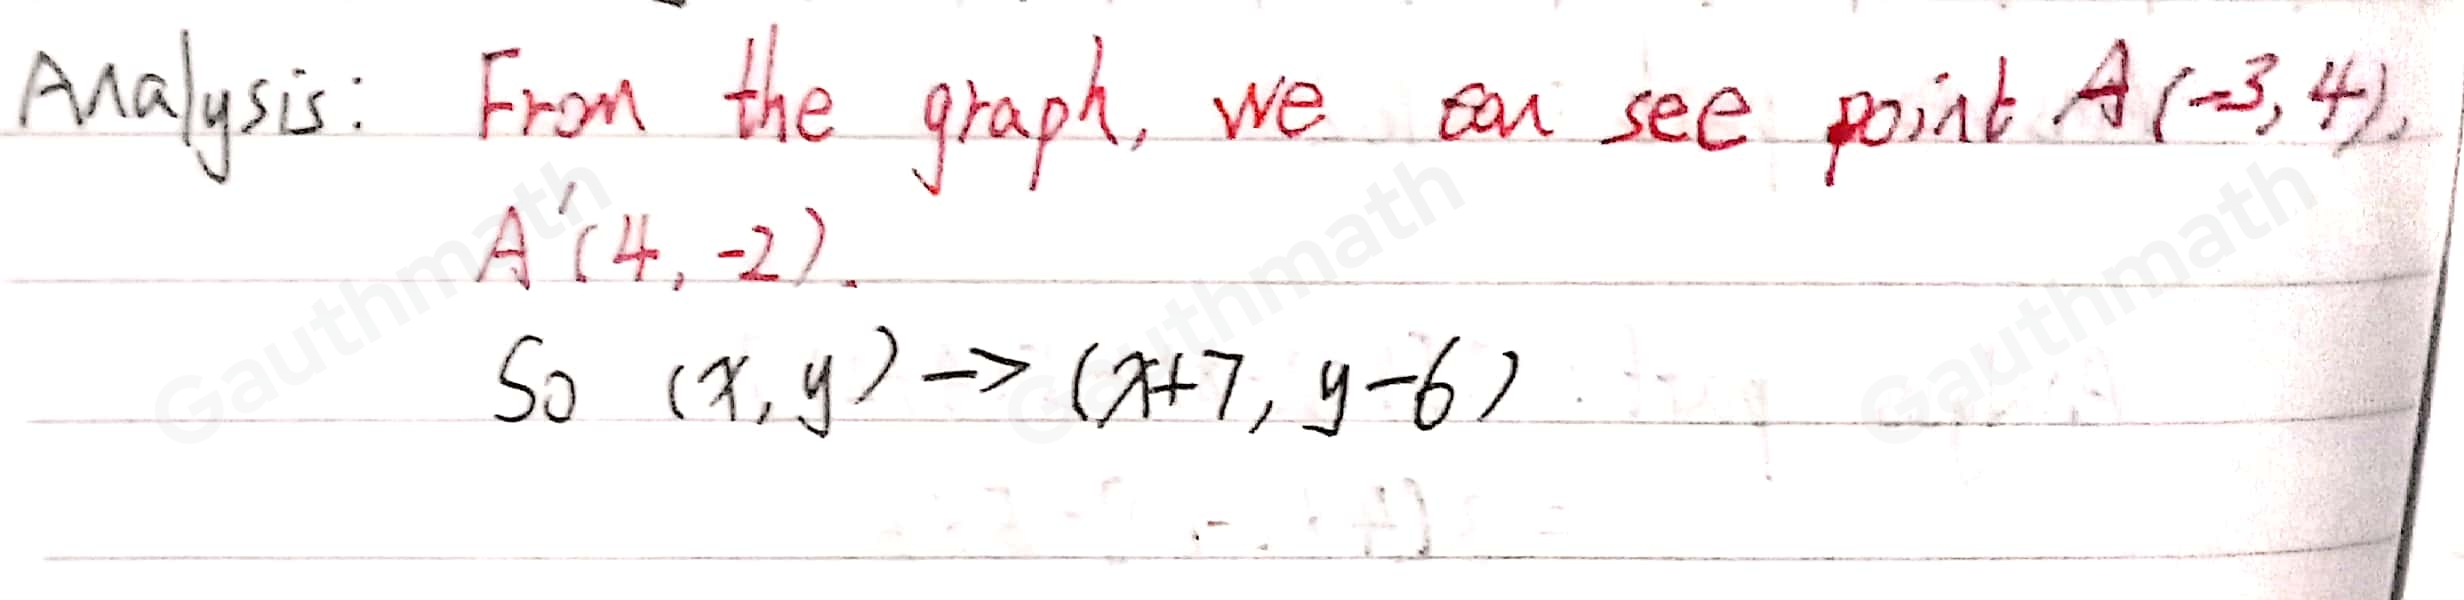 Analysis: From the graph, we can see point A(-3, 4),
A'(4, -2).
So (x, y) -> (x+7, y-6)
Gauthmath Gauthmath Gauthmath